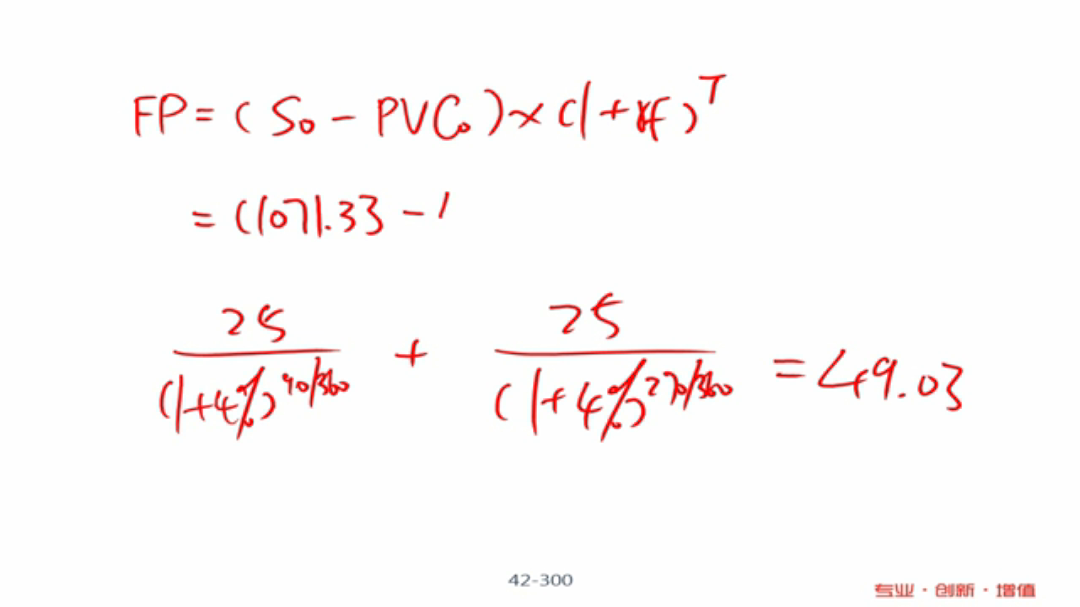 FP = (S₀ - PVC₀) × (1 + rf)ᵀ
= (1071.33 - 1
25/(1+4%)^90/360 + 25/(1+4%)^270/360 = 49.03
42-300
专业·创新·增值